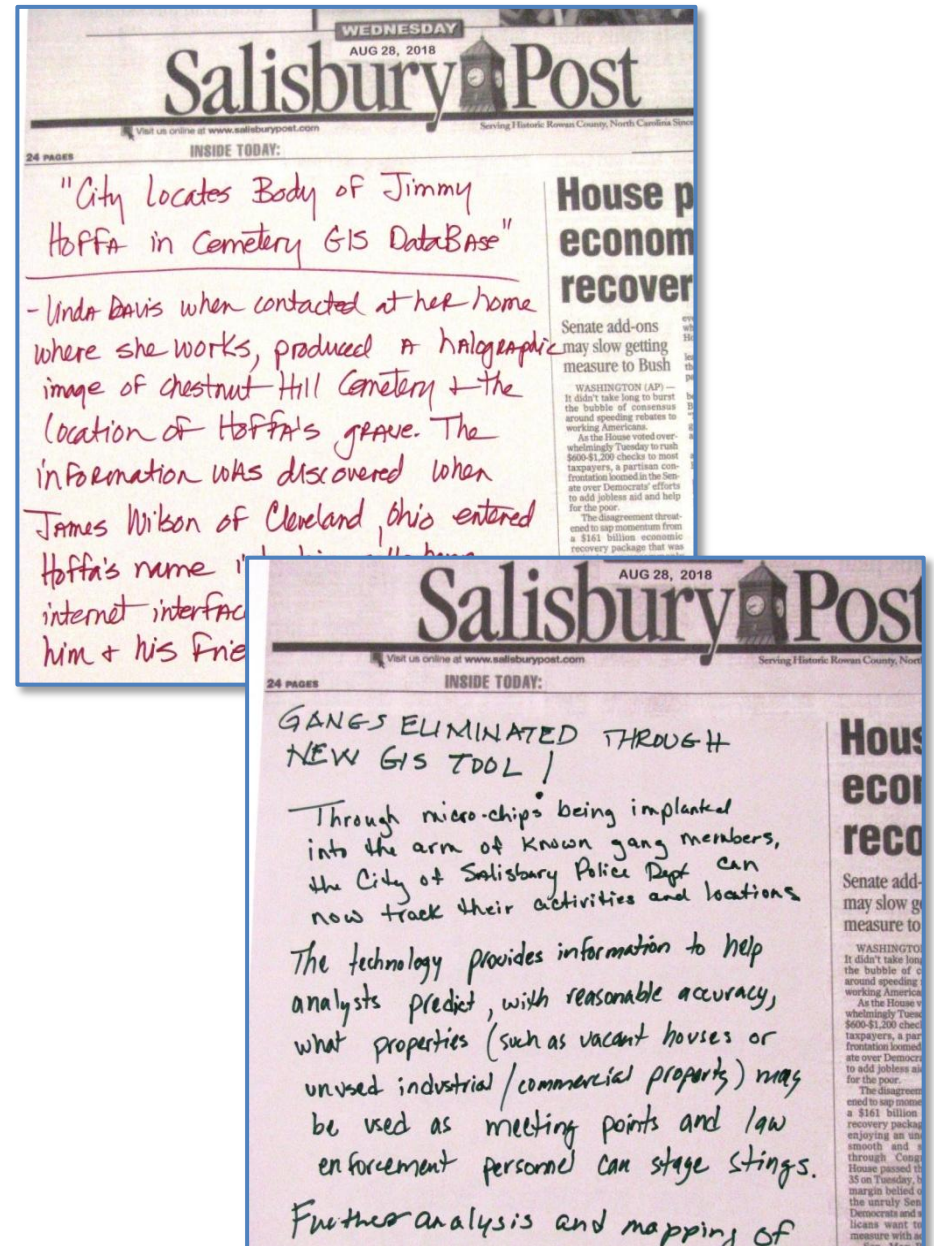 WEDNESDAY
AUG 28, 2018
Salisbury Post
Visit us online at www.salisburypost.com
Serving Historic Rowan County, North Carolina Since
24 PAGES
INSIDE TODAY:
"City Locates Body of Jimmy
Hoffa in Cemetery GIS DataBase"
- Linda Davis when contacted at her home
where she works, produced A halographic
image of chestnut Hill Cemetery + the
location of Hoffa's grave. The
information was discovered when
James Wilson of Cleveland, Ohio entered
Hoffa's name
internet interfac
him + his frie
House p
econom
recover
Senate add-ons
may slow getting
measure to Bush
WASHINGTON (AP) —
It didn't take long to burst
the bubble of consensus
around speeding rebates to
working Americans.
As the House voted over-
whelmingly Tuesday to rush
$600-$1,200 checks to most
taxpayers, a partisan con-
frontation loomed in the Sen-
ate over Democrats' efforts
to add jobless aid and help
for the poor.
The disagreement threat-
ened to sap momentum from
a $161 billion economic
recovery package that was
AUG 28, 2018
Salisbury Post
Visit us online at www.salisburypost.com
Serving Historic Rowan County, Nort
24 PAGES
INSIDE TODAY:
GANGS ELIMINATED THROUGH
NEW GIS TOOL!
Through micro-chips being implanted
into the arm of known gang members,
the City of Salisbury Police Dept can
now track their activities and locations
The technology provides information to help
analysts predict, with reasonable accuracy,
what properties (such as vacant houses or
unused industrial/commercial property) may
be used as meeting points and law
enforcement personnel can stage stings.
Further analysis and mapping of
Hous
econ
reco
Senate add-
may slow g
measure to
WASHINGTO
It didn't take long
the bubble of c
around speeding
working America
As the House v
whelmingly Tuesd
$600-$1,200 chec
taxpayers, a par
frontation loomed
ate over Democra
to add jobless ai
for the poor.
The disagreem
ened to sap mome
a $161 billion
recovery packag
enjoying an un
smooth and s
through Congr
House passed th
35 on Tuesday, b
margin belied o
the unruly Sen
Democrats and s
licans want to
measure with ad